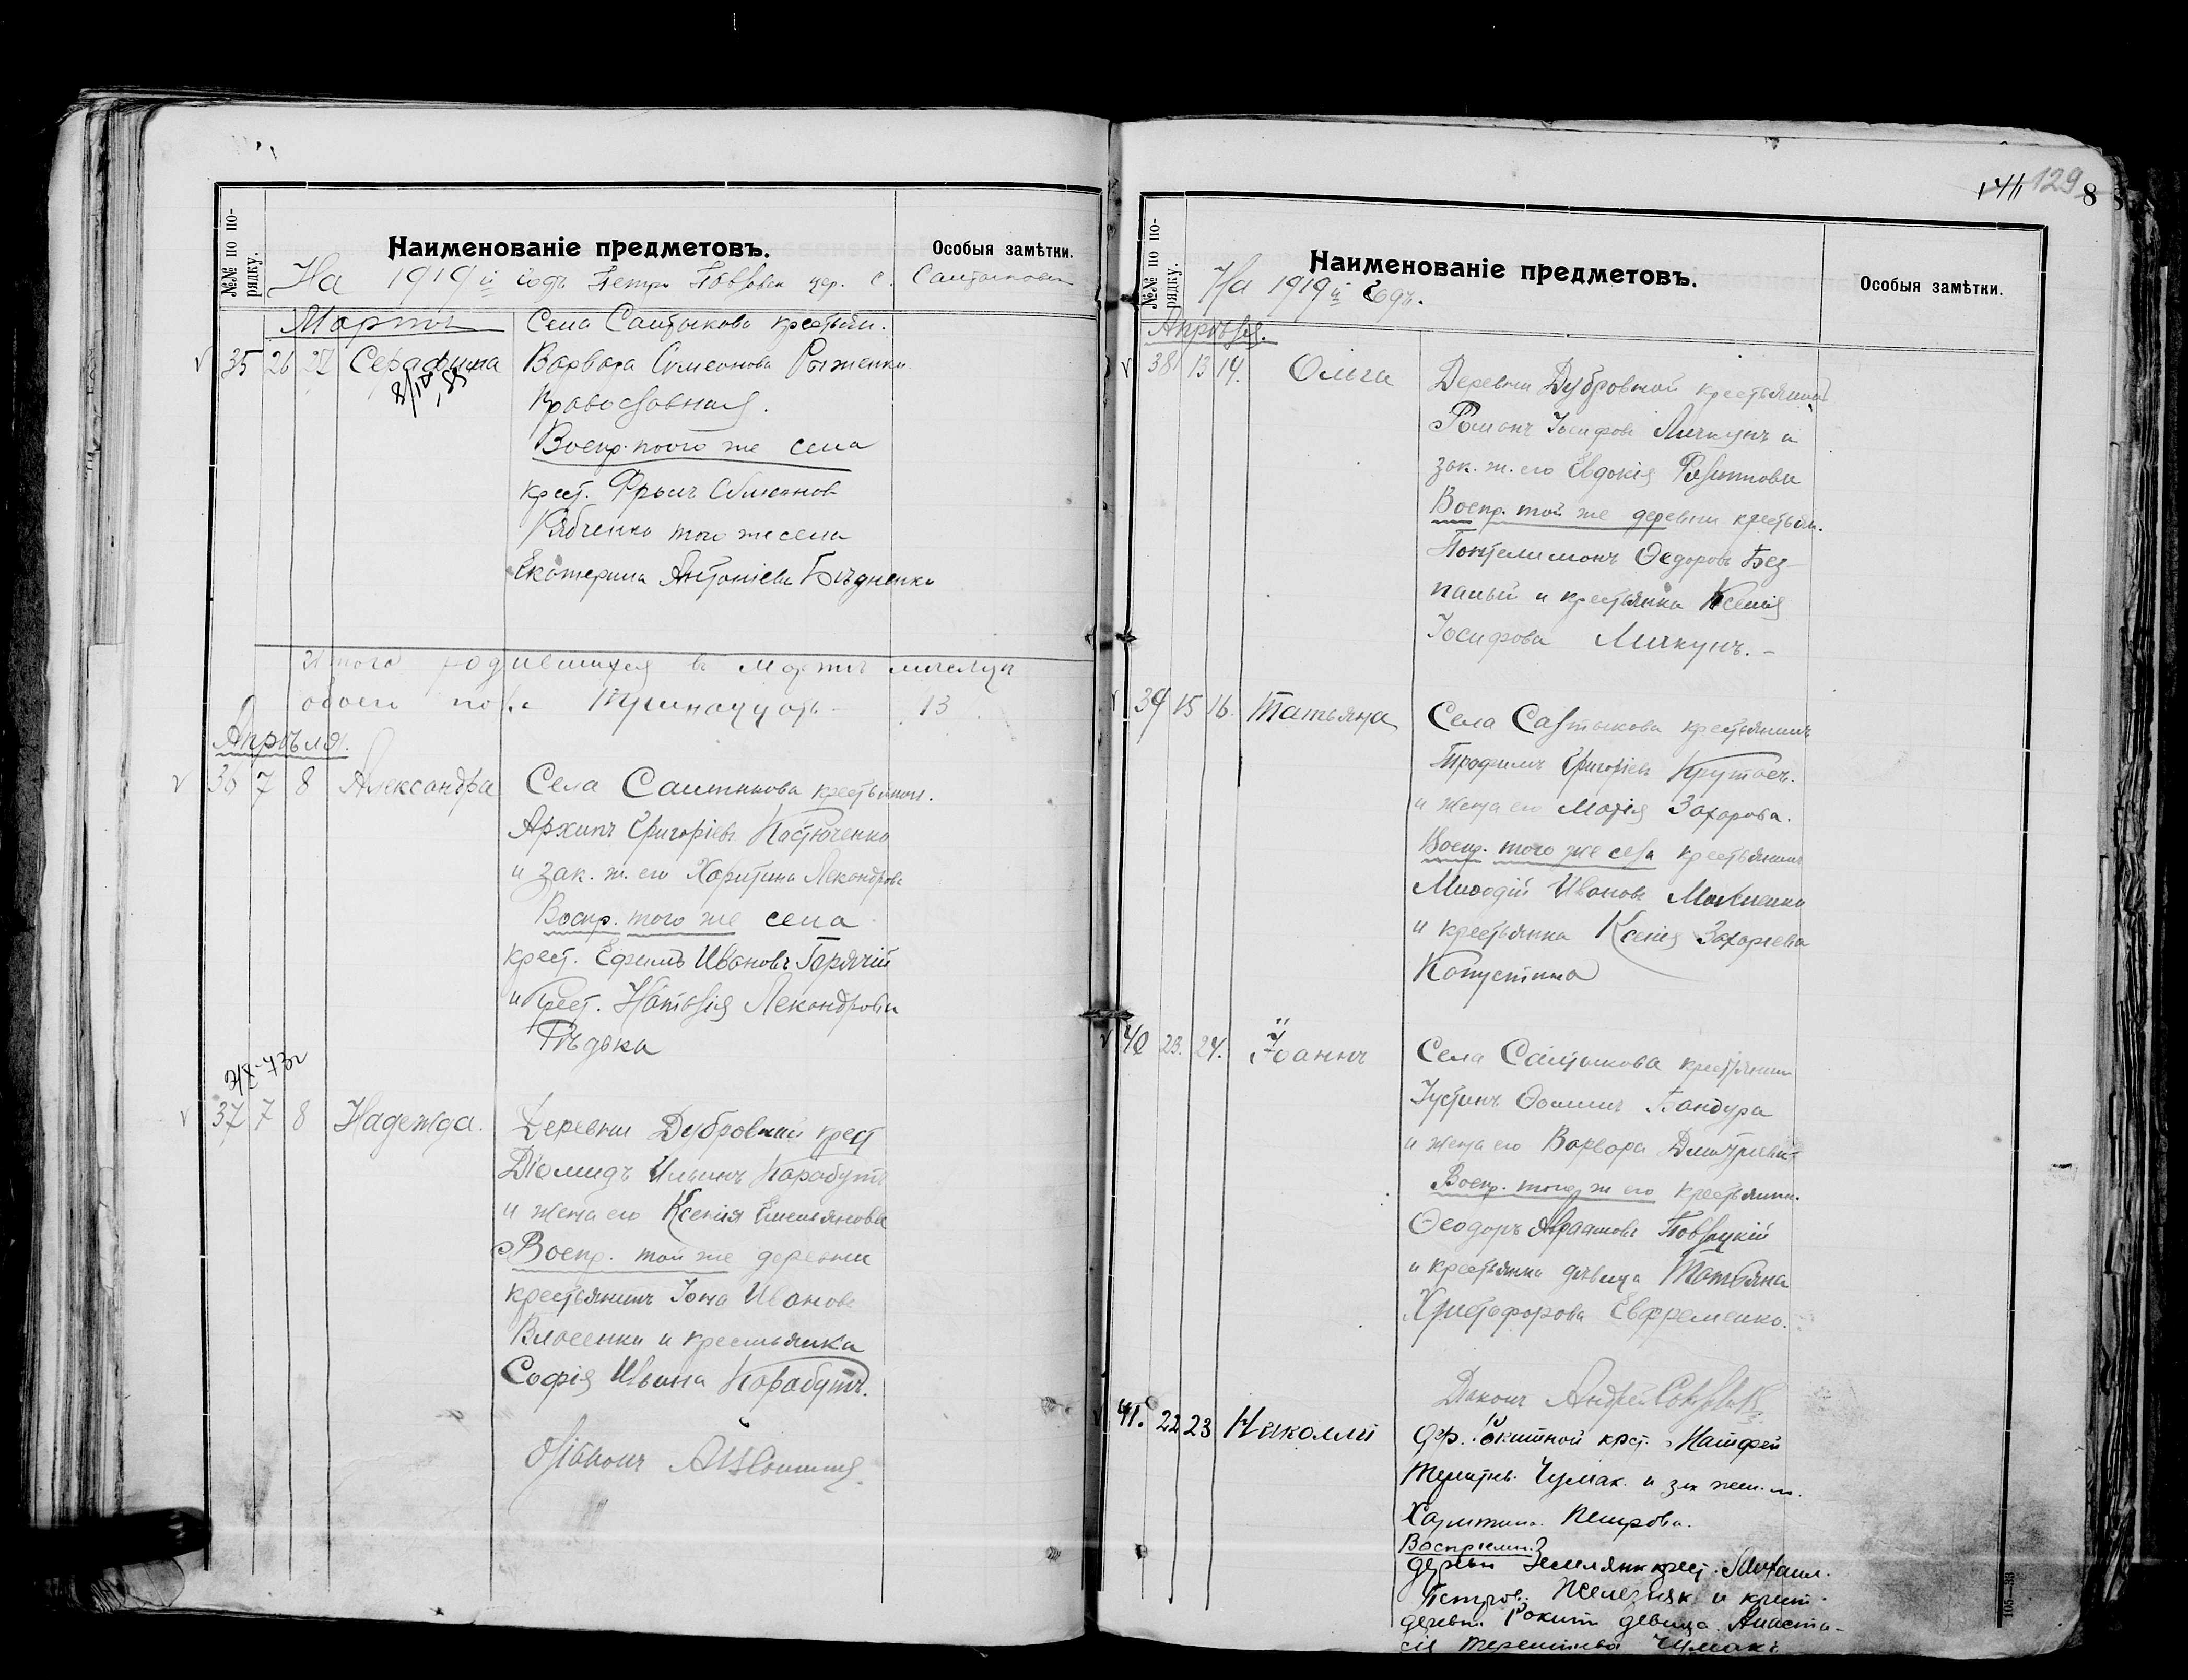 №№ по по-
рядку.
Наименованіе предметовъ.
Особыя замѣтки.
На 1919й годъ Петро Павлов. цер. с. Салтыкова
Марта
Села Салтыкова крестьян.
35 26 27 Серафима Варвара Симеонова Рыженко
Православная.
Воспр. того же села
крест. Симеонов
Рябченко того же села
Екатерина Антоніева Бѣдненко
Итого родившихся въ Мартѣ мѣсяцѣ
обоего пола Тринадцать 13
Апрѣля.
36 7 8 Александра Села Салтыкова крестьянин.
Архипъ Григоріевъ Костюченко
и зак. ж. его Харитина Лександрова
Воспр. того же села
крест. Ефимъ Ивановъ Горячій
и крест. Наталія Лександрова
Рѣдька
37 7 8 Надежда. Деревни Дубровной крест
Діомидъ Ильинъ Карабутъ
и жена его Ксенія Емельянова
Воспр. той же деревни
крестьянинъ Іона Иванов
Власенко и крестьянка
Софія Ильина Карабутъ.
129
8
№№ по по-
рядку.
Наименованіе предметовъ.
Особыя замѣтки.
На 1919й Годъ.
Апрѣля.
38 13 14. Ольга Деревни Дубровной крестьянинъ
Романъ Іосифовъ Личкунъ и
зак. ж. его Евдокія
Воспр. той же деревни крестьян.
Пантелимонъ Ѳедоровъ Без-
палый и крестьянка Ксенія
Іосифова Личкунъ. –
39 15 16. Татьяна Села Салтыкова крестьянинъ
Трофимъ Григоріевъ
и жена его Марія Захарова.
Воспр. того же села крестьянинъ
Меѳодій Ивановъ
и крестьянка Ксенія Захаріева
Капустина
40 23. 24. Іоаннъ Села Салтыкова крестьянинъ
Іустинъ Ѳоминъ Бандура
и жена его Варвара Дмитріева
Воспр. того ж его крестьянин.
Ѳеодоръ Авраамовъ Повлацкій
и крестьянка дѣвица Татьяна
Христофорова Евфременко.
Діаконъ Андрей
41. 22 23 Николай дер. Рокитной крст. Матфей
Терентьев. Чумак. и зак жен.
Харитина. Петрова.
Воспріемн.
деревн Землянк крест. Михаил.
Петров. Железняк и крест.
деревн. Рокитн девица Анаста-
сія Терентьева Чумакъ.
105—33